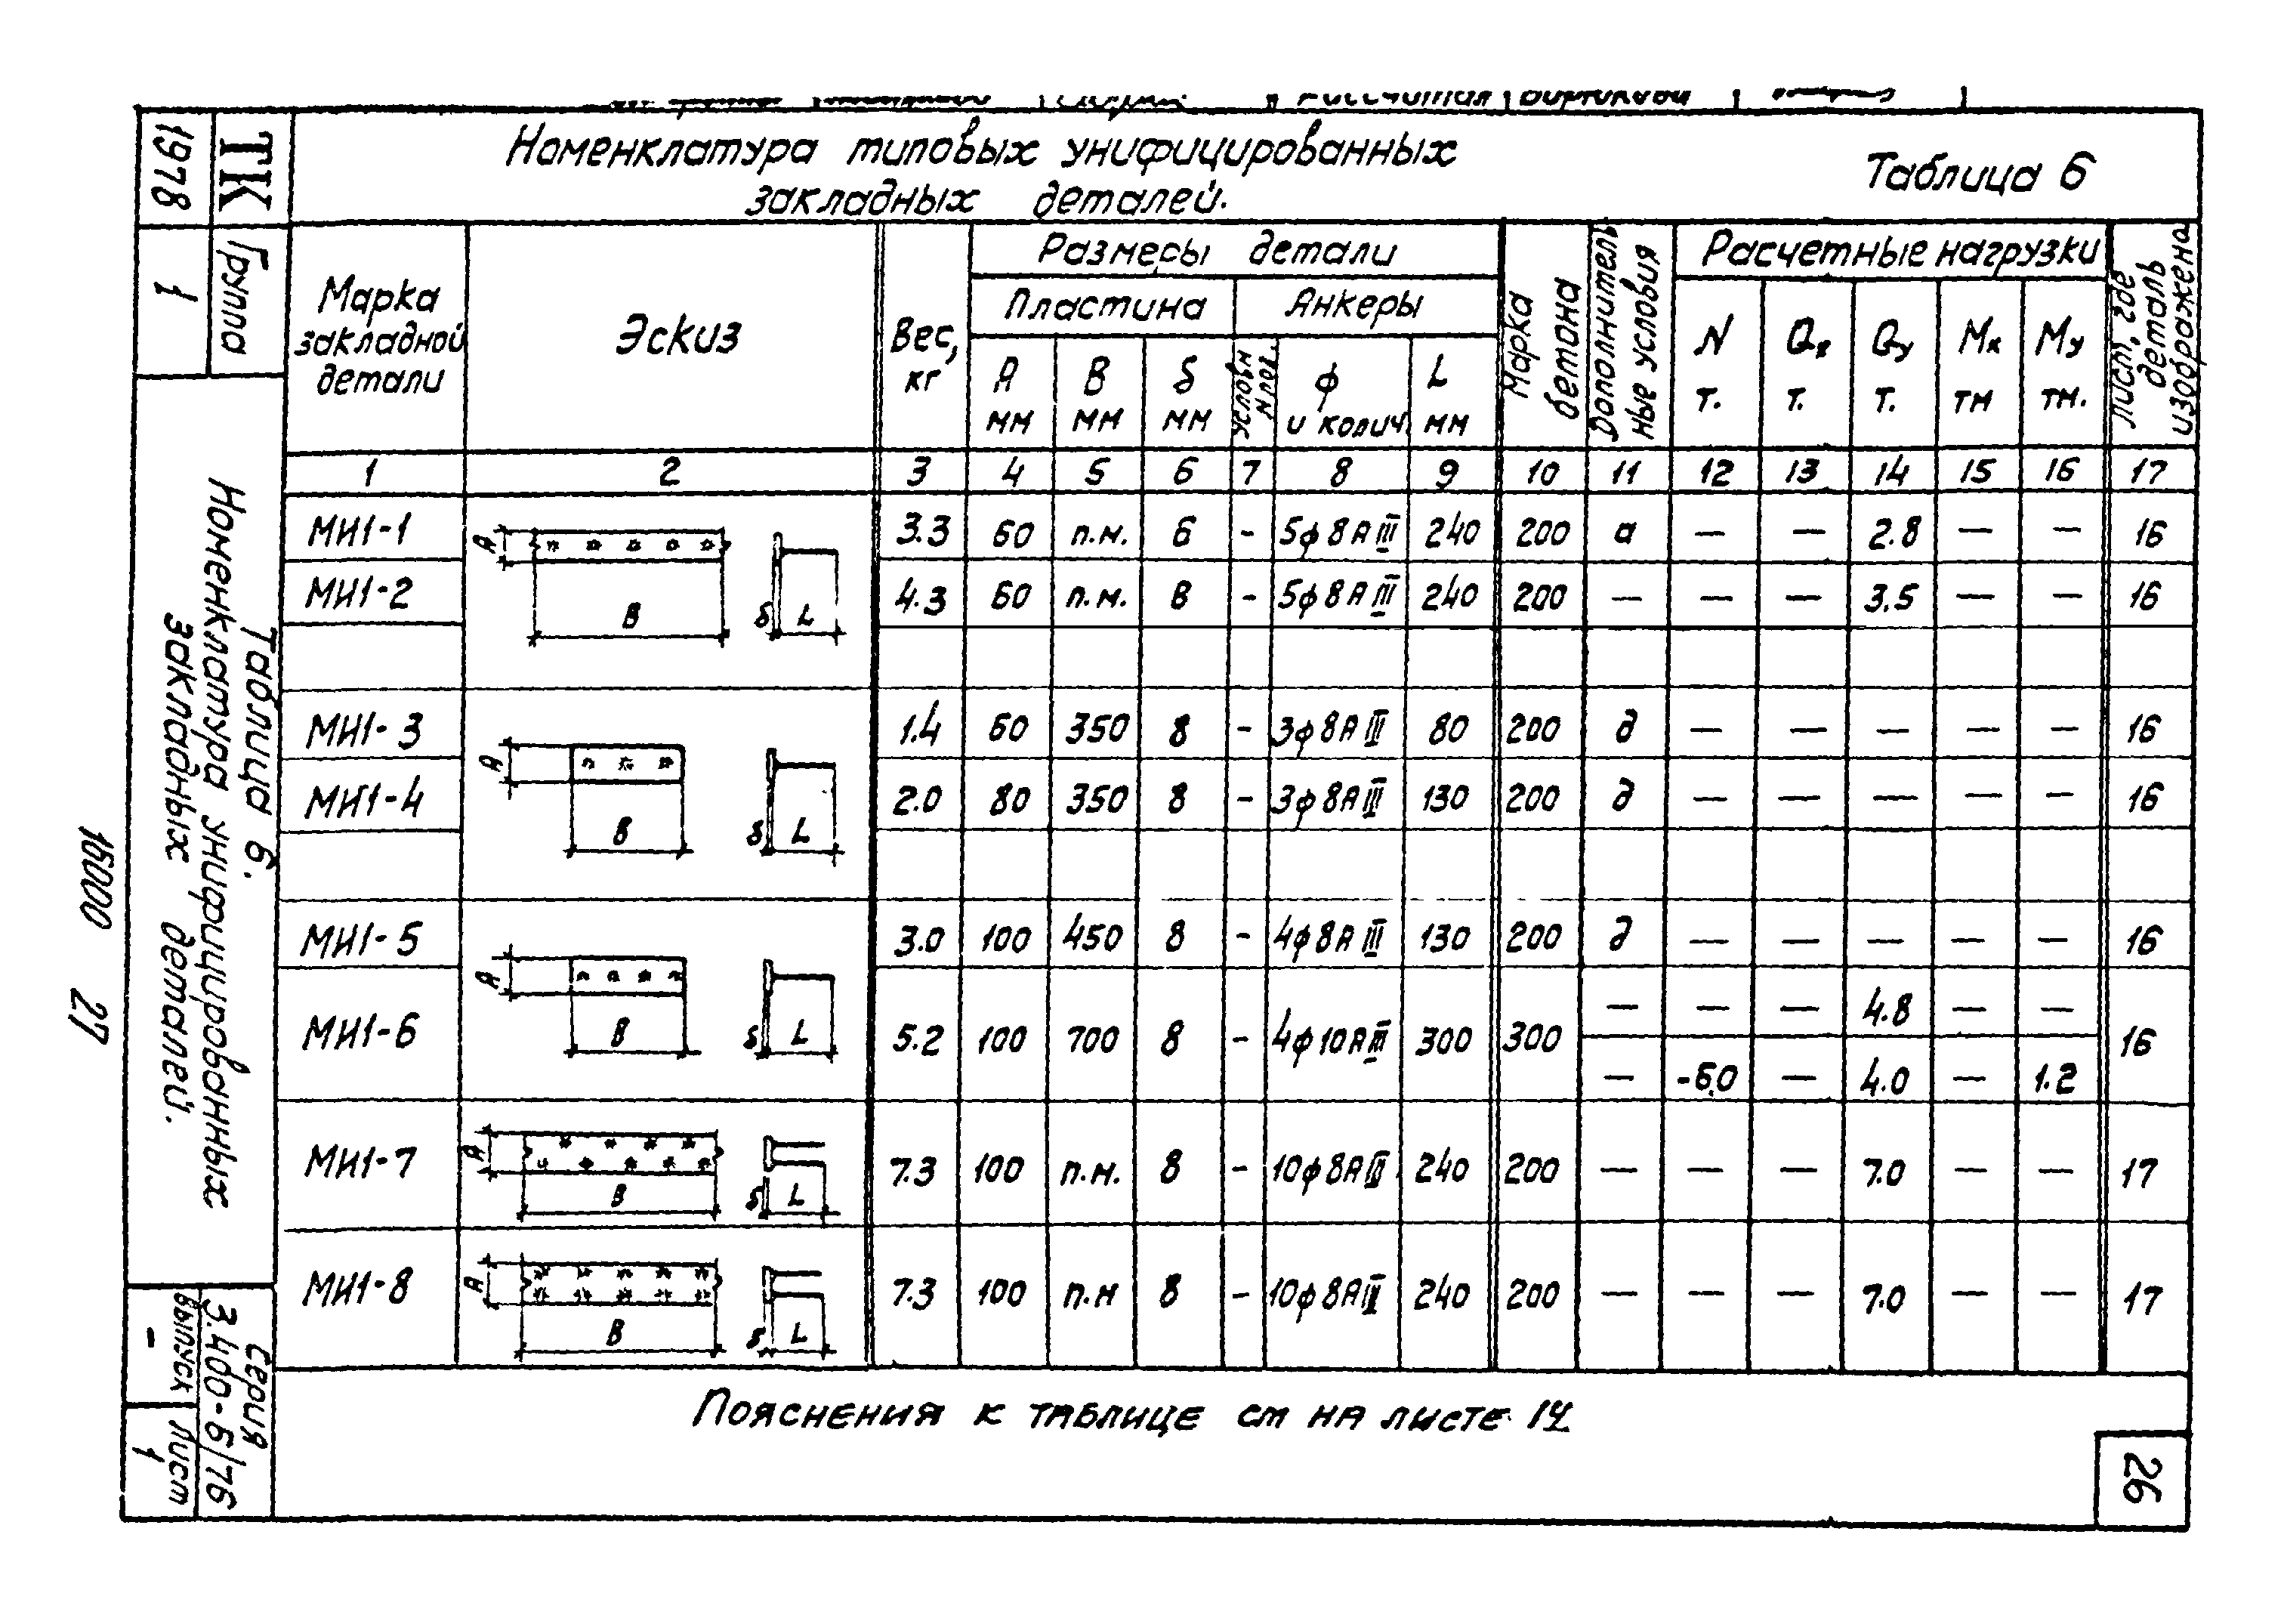 Номенклатура типовых унифицированных
закладных деталей.
Таблица 6
ТК
1978
Группа
1
Таблица 6.
Номенклатура унифицированных
закладных деталей.
Серия
3.400-6/76
Выпуск
-
Лист
1
16000 27
Марка закладной детали | Эскиз | Вес, кг | Размеры детали | Марка бетона | Дополнительные условия | Расчетные нагрузки | Лист, где деталь изображена
Пластина | Анкеры
А мм | В мм | δ мм | Условн № поз. | ф и колич. | L мм | N т. | Qx т. | Qy т. | Мх тм | Му тм.
1 | 2 | 3 | 4 | 5 | 6 | 7 | 8 | 9 | 10 | 11 | 12 | 13 | 14 | 15 | 16 | 17
МИ1-1 | 3.3 | 60 | п.м. | 6 | - | 5ф8АIII | 240 | 200 | а | — | — | 2.8 | — | — | 16
МИ1-2 | 4.3 | 60 | п.м. | 8 | - | 5ф8АIII | 240 | 200 | — | — | — | 3.5 | — | — | 16
А В δ L
МИ1-3 | 1.4 | 60 | 350 | 8 | - | 3ф8АIII | 80 | 200 | д | — | — | — | — | — | 16
МИ1-4 | 2.0 | 80 | 350 | 8 | - | 3ф8АIII | 130 | 200 | д | — | — | — | — | — | 16
А В δ L
МИ1-5 | 3.0 | 100 | 450 | 8 | - | 4ф8АIII | 130 | 200 | д | — | — | — | — | — | 16
МИ1-6 | 5.2 | 100 | 700 | 8 | - | 4ф10АIII | 300 | 300 | — | — | — | 4.8 | — | — | 16
— | -6.0 | — | 4.0 | — | 1.2
А В δ L
МИ1-7 | 7.3 | 100 | п.м. | 8 | - | 10ф8АIII | 240 | 200 | — | — | — | 7.0 | — | — | 17
А В δ L
МИ1-8 | 7.3 | 100 | п.м | 8 | - | 10ф8АIII | 240 | 200 | — | — | — | 7.0 | — | — | 17
А В δ L
Пояснения к таблице см на листе 14
26